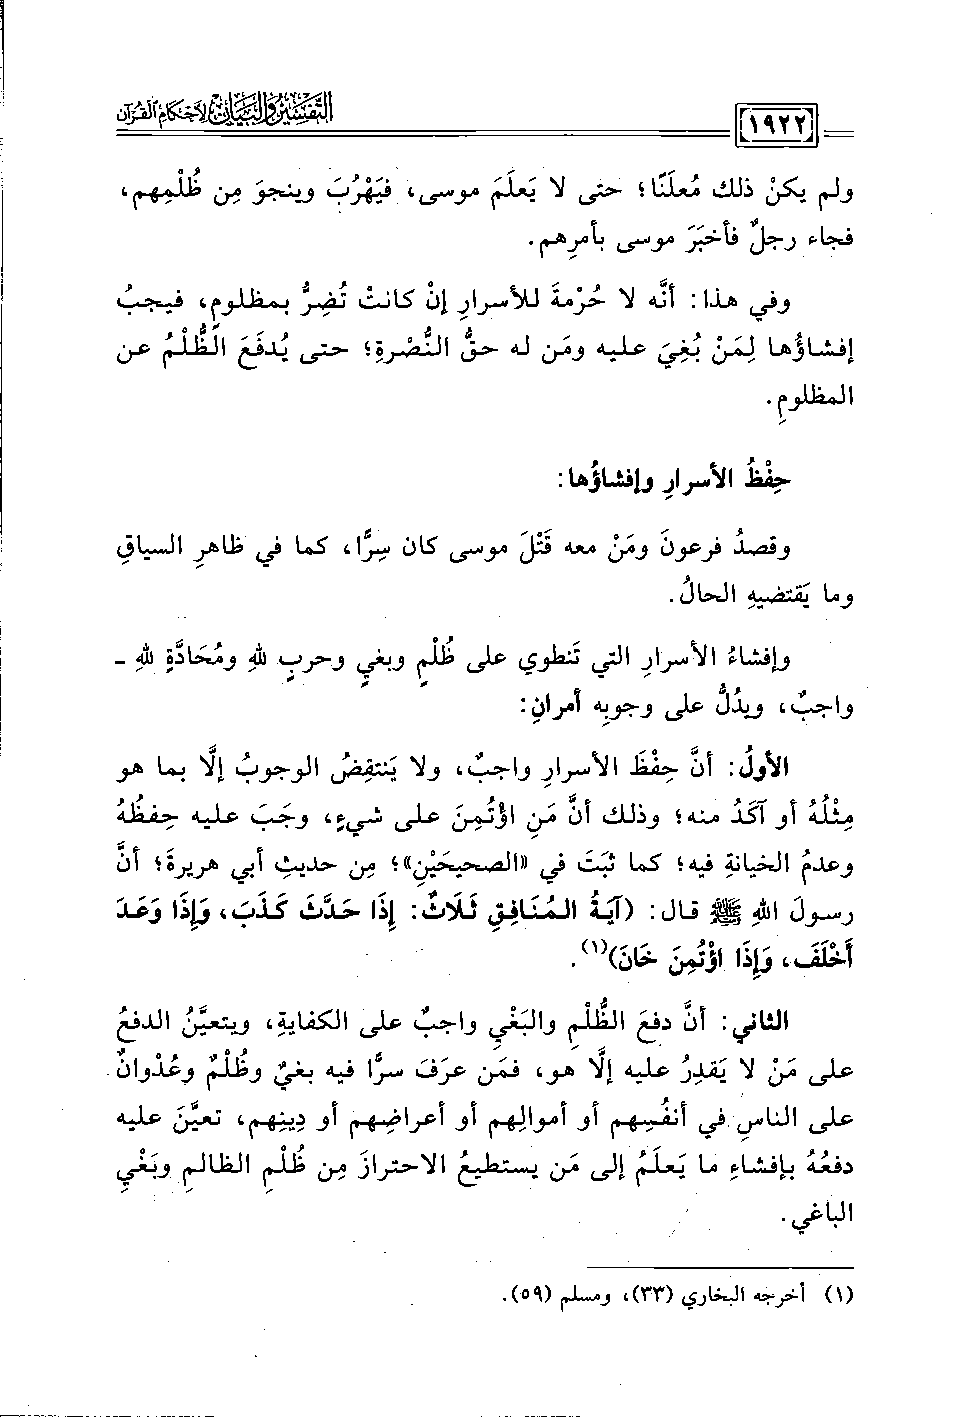 التفسير والبيان لأحكام القرآن
١٩٢٢
ولم يكنْ ذلك مُعلَنًا؛ حتى لا يَعلَمَ موسى، فيَهْرُبَ وينجوَ مِن ظُلْمِهم،
فجاء رجلٌ فأخبَرَ موسى بأمرِهم.
وفي هذا: أنَّه لا حُرْمةَ للأسرارِ إنْ كانتْ تُضِرُّ بمظلومٍ، فيجبُ
إفشاؤُها لِمَنْ بُغِيَ عليه ومَن له حقُّ النُّصْرةِ؛ حتى يُدفَعَ الظُّلْمُ عن
المظلومِ.
حِفْظُ الأسرارِ وإفشاؤُها:
وقصدُ فرعونَ ومَنْ معه قَتْلَ موسى كان سِرًّا، كما في ظاهرِ السياقِ
وما يَقتضيهِ الحالُ.
وإفشاءُ الأسرارِ التي تَنطوي على ظُلْمٍ وبغيٍ وحربٍ للهِ ومُحَادَّةٍ للهِ -
واجبٌ، ويدُلُّ على وجوبِه أمرانِ:
الأولُ: أنَّ حِفْظَ الأسرارِ واجبٌ، ولا يَنتقِضُ الوجوبُ إلَّا بما هو
مِثْلُهُ أو آكَدُ منه؛ وذلك أنَّ مَنِ اؤْتُمِنَ على شيءٍ، وجَبَ عليه حِفظُهُ
وعدمُ الخيانةِ فيه؛ كما ثبَتَ في «الصحيحَيْنِ»؛ مِن حديثِ أبي هريرةَ؛ أنَّ
رسولَ اللهِ ﷺ قال: (آيَةُ المُنَافِقِ ثَلَاثٌ: إِذَا حَدَّثَ كَذَبَ، وَإِذَا وَعَدَ
أَخْلَفَ، وَإِذَا اؤْتُمِنَ خَانَ)(١).
الثاني: أنَّ دفعَ الظُّلْمِ والبَغْيِ واجبٌ على الكفايةِ، ويتعيَّنُ الدفعُ
على مَنْ لا يَقدِرُ عليه إلَّا هو، فمَن عرَفَ سرًّا فيه بغيٌ وظُلْمٌ وعُدْوانٌ
على الناسِ في أنفُسِهم أو أموالِهم أو أعراضِهم أو دِينِهم، تعيَّنَ عليه
دفعُهُ بإفشاءِ ما يَعلَمُ إلى مَن يستطيعُ الاحترازَ مِن ظُلْمِ الظالمِ وبَغْيِ
الباغي.
(١) أخرجه البخاري (٣٣)، ومسلم (٥٩).